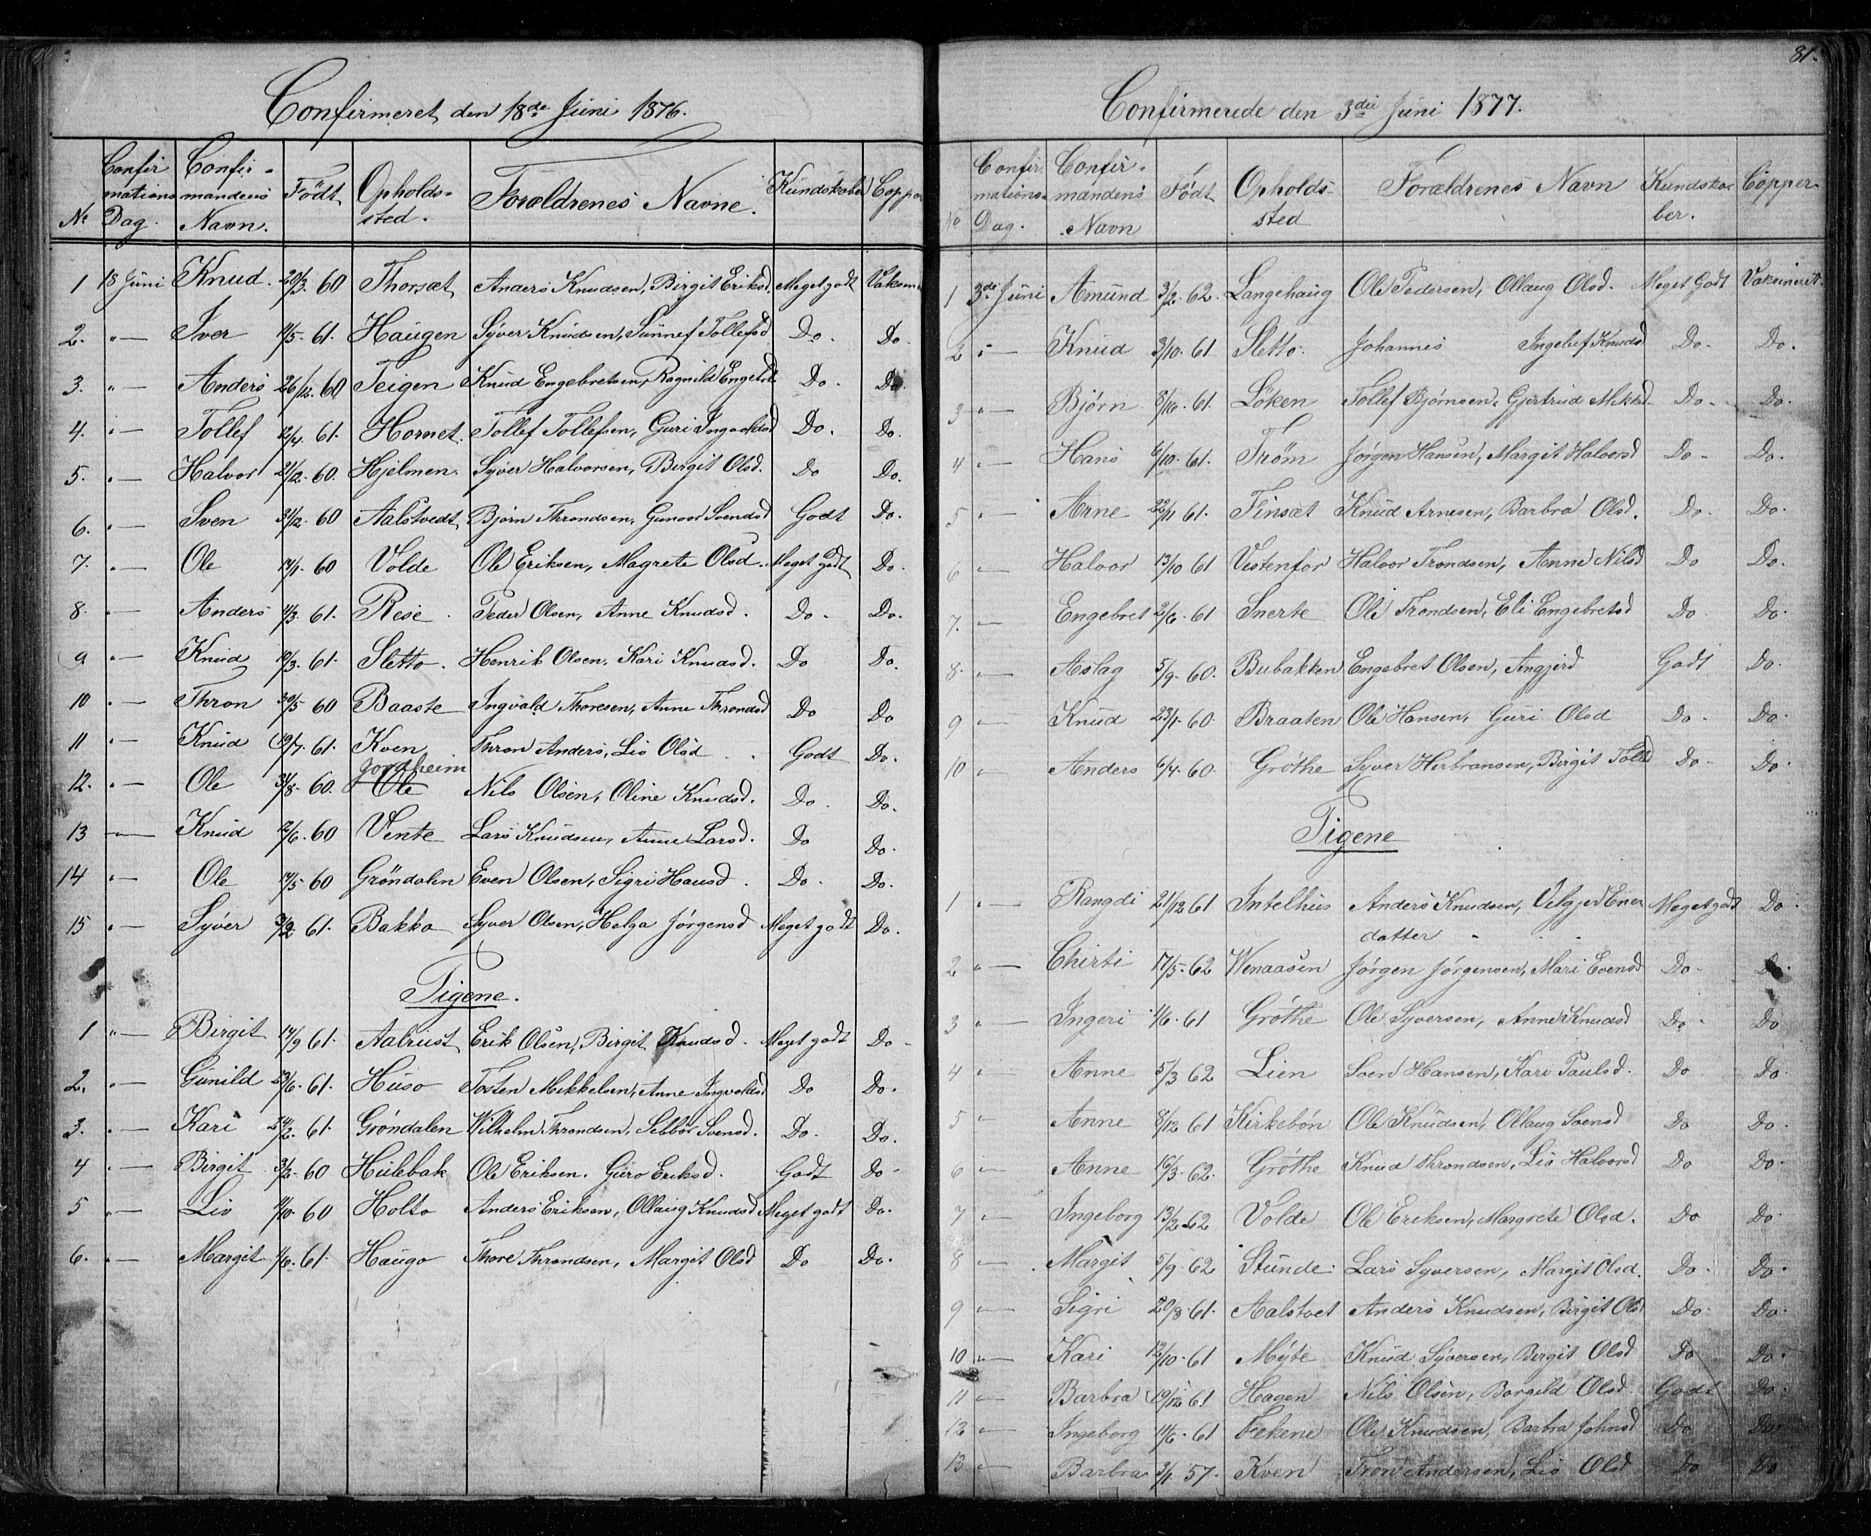 Confirmeret den 18de Juni 1876.
No Confirmations Dag. Confirmandens Navn. Födt Opholdssted. Forældrenes Navne. Kundskaber Copper
1 18 Juni Knud 60 Thorsæt Anders Knudsen, Birgit Eriksd. Meget godt Vaksin
2. "— Iver 11/5. 61. Haugen Syver Knudsen, Sunnef Tollefsd Do. Do.
3. "— Anders 26/12. 60 Teigen Knud Engebretsen, Ragnild Engebretsd Do. Do
4. "— Tollef 61. Hornet. Tollef Tollefsen, Guri Do. Do.
5. "— Halvor 21/12. 60. Hjelmen. Syver Halvorsen, Birgit Olsd. Do Do.
6. "— Sven 31/12. 60 Aalstvedt Bjørn Throndsen, Gunvor Svendsd Godt Do.
7. "— Ole 60 Volde Ole Eriksen, Magrete Olsd. Meget godt Do.
8. "— Anders 61. Rese. Peder Olsen, Anne Knudsd. Do. Do.
9 "— Knud 61. Sletto. Henrik Olsen, Kari Knudsd. Do Do.
10 "— Thron 30/5 60 Baaste Ingvald Thoresen, Anne Throndsd Do Do
11 "— Knud 19/7. 61. Kven Thron Anders, Liv Olsd Godt Do.
12. "— Ole 31/8. 60. Gordheim Ole Nils Olsen, Oline Knudsd. Do. Do.
13 — Knud 60 Vente Lars Knudsen, Anne Larsd. Do Do.
14 "— Ole 60 Grøndalen Even Olsen, Sigri Hansd. Do. Do.
15 "— Syver 61. Bakko Syver Olsen, Helga Jørgensd Meget godt Do.
Tigene.
1 "— Birgit 14/9 61. Aalrust Erik Olsen, Birgit Knudsd. Meget godt Do
2. "— Gunild 23/6. 61. Huso Torsten Mikkelsen, Anne Ingvaldsd Do Do.
3. "— Kari 24/2. 61. Grøndalen Wilhelm Throndsen, Svensd. Do. Do.
4 "— Birgit 3/2. 60 Hulebak Ole Eriksen. Guro Eriksd. Godt Do
5 "— Liv 60 Holto Anders Eriksen, Ollaug Knudsd Meget godt Do.
6. "— Margit 61. Haugo Thore Throndsen, Margit Olsd Do Do.
81.
Confirmerede den 3die Juni 1877.
No Confirmations Dag. Confirmandens Navn Födt Opholdssted Forældrenes Navn Kundskaber. Copper
1 3de Juni Amund 3/2. 62. Langehaug Ole Pedersen, Ollaug Olsd. Meget Godt Vaksineret
2 "— Knud 3/10. 61. Sletto. Johannes Ingelef Knudsd Do. Do.
3 "— Bjørn 8/10. 61. Löken Tollef Bjørnsen, Gjertrud Mikkelsd Do. Do.
4 "— Hans 6/10. 61. Trøm Jørgen Hansen, Margit Halvorsd Do. Do.
5 "— Arne 22/11 61. Finsæt Knud Arnesen, Barbra Olsd. Do. Do.
6 "— Halvor 13/10 61 Vestenfor Halvor Trondsen, Anne Nilsd Do Do.
7. "— Engebret 2/6. 61 Snerte Ole Trondsen, Eli Engebretsd Do Do
8. "— Aslag 5/9. 60. Bubakken Engebret Olsen, Angjerd Godt Do.
9 "— Knud 23/1. 60. Braaten Ole Hansen, Guri Olsd Do. Do
10 "— Anders 6/4. 60. Grøthe Syver Herbransen, Birgit Tolld Do. Do.
Tigene
1 "— Rangdi 21/12 61 Intelhus Anders Knudsen, Velgjerd Ener Meget godt Do
datter
2 "— Chirti 17/5. 62 Wenaasen Jørgen Jørgensen, Mari Evensd Do. Do.
3 "— Ingeri 61 Grøthe Ole Syversen, Anne Knudsd Do. Do
4 "— Anne 5/3 62 Lien Sven Hansen, Kari Paulsd. Do Do.
5 "— Anne 8/12 61 Kirkebøn Ole Knudsen, Ollaug Svensd Do Do.
6 "— Anne 16/3. 62. Grøthe Knud Throndsen, Liv Halvorsd Do Do.
7 "— Ingeborg 13/2. 62 Volde Ole Eriksen, Margrete Olsd. Do Do.
8 "— Margit 5/9. 62 Stunde. Lars Syversen, Margit Olsd. Do. Do.
9 "— Sigri 20/8. 61. Aalstvet Anders Knudsen, Birgit Olsd Do. Do.
10 "— Kari 12/10. 61 Mýte Knud Syversen, Birgit Olsd Do Do.
11 "— Barbra 19/12. 61 Hagen Nils Olsen, Borgild Olsd. Godt Do.
12 "— Ingeborg 61 Fekene Ole Knudsen, Barbra Johnsd Do Do.
13 "— Barbra 57. Kven Tron Andersen, Liv Olsd Do Do